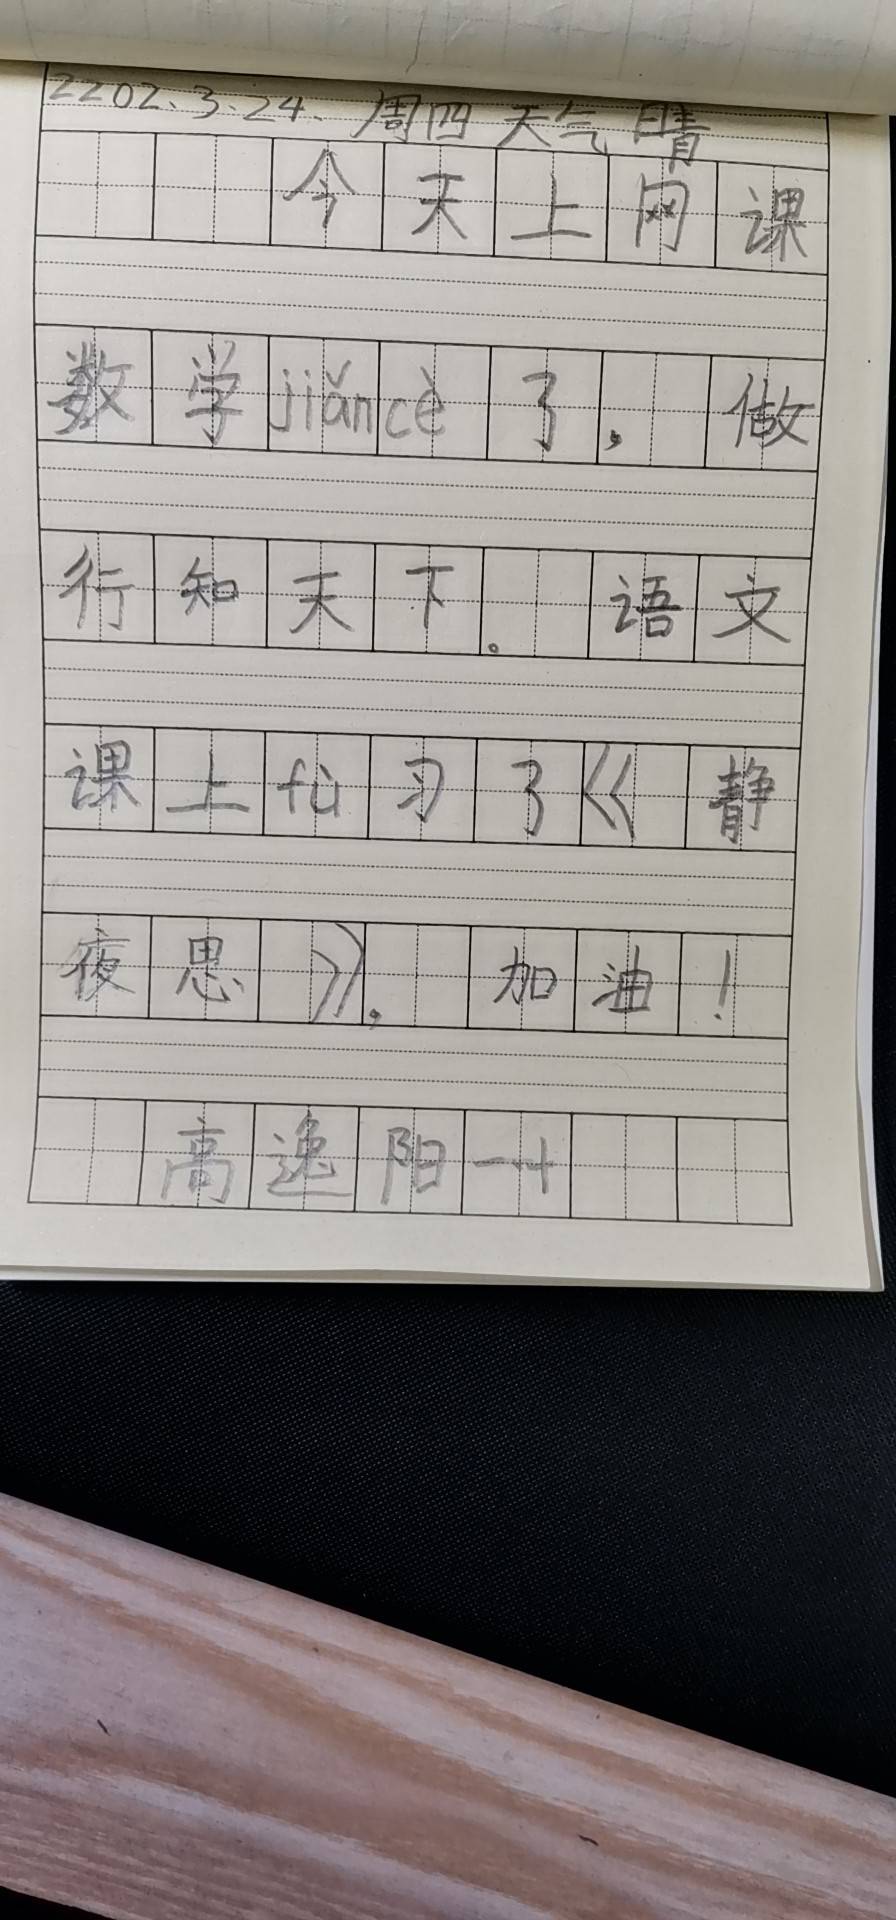 2202.3.24. 周四 天气 晴
今天上网课
数学jiǎncè了，做
行知天下。语文
课上fù习了《静
夜思》，加油！
高逸阳